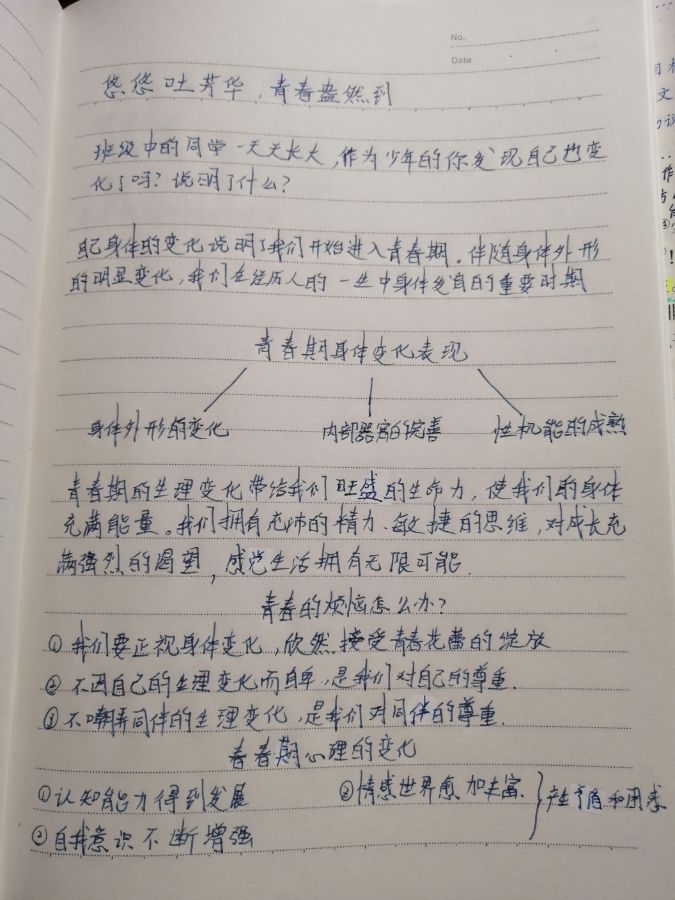 No.
Date
悠悠吐芳华，青春盎然到
班级中的同学一天天长大，作为少年的你发现自己也变
化了吗？说明了什么？
自己身体的变化说明了我们开始进入青春期。伴随身体外形
的明显变化，我们在经历人的一生中身体发育的重要时期
青春期身体变化表现
身体外形的变化 内部器官的完善 性机能的成熟
青春期的生理变化带给我们旺盛的生命力，使我们的身体
充满能量。我们拥有充沛的精力、敏捷的思维，对成长充
满强烈的渴望，感觉生活拥有无限可能.
青春的烦恼怎么办？
① 我们要正视身体变化，欣然接受青春花蕾的绽放
② 不因自己的生理变化而自卑，是我们对自己的尊重.
③ 不嘲弄同伴的生理变化，是我们对同伴的尊重.
青春期心理的变化
① 认知能力得到发展 ③ 情感世界愈加丰富.
② 自我意识不断增强
产生矛盾和困惑